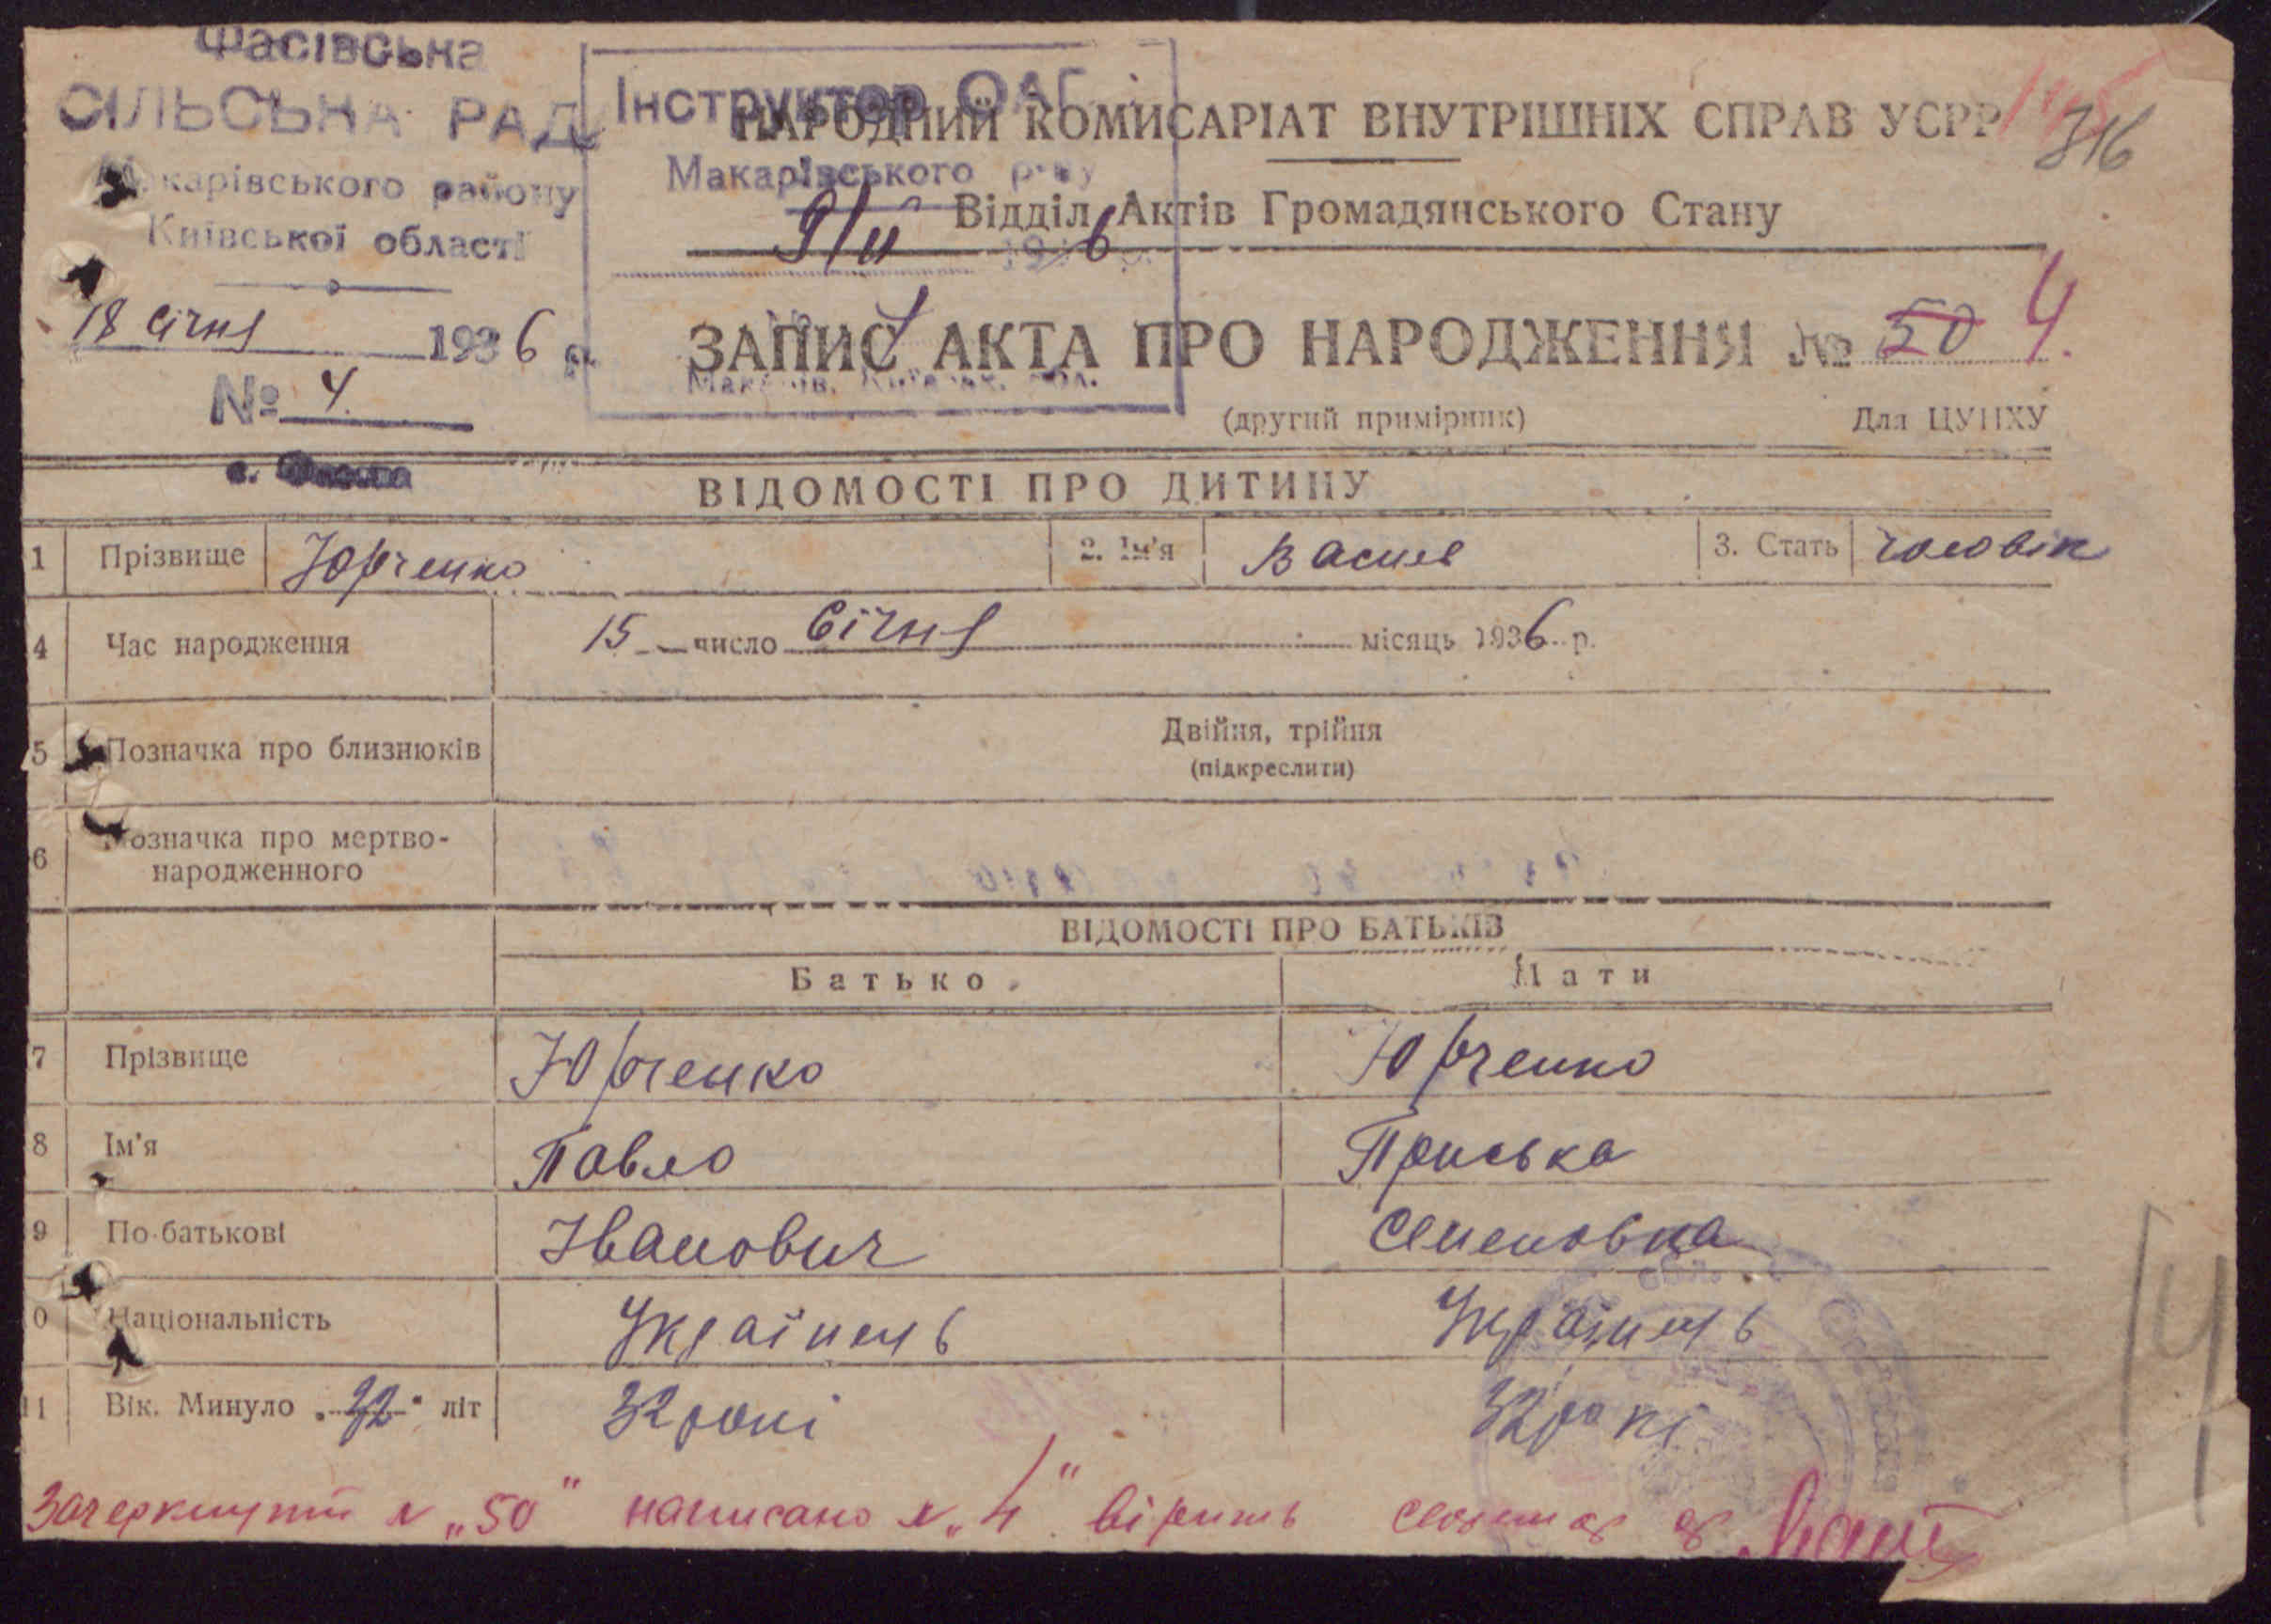 Фасівська
СІЛЬСЬКА РАДА
Макарівського району
Київської області
18 січня 1936 р.
№ 4.
с.
Інструктор ОАГС
Макарівського р-ну
9/II 1936
Макарів, Київськ. обл.
НАРОДНИЙ КОМИСАРІАТ ВНУТРІШНІХ СПРАВ УСРР
316
Відділ Актів Громадянського Стану
ЗАПИС АКТА ПРО НАРОДЖЕННЯ № 50 4.
(другий примірник) Для ЦУНХУ
ВІДОМОСТІ ПРО ДИТИНУ
1 Прізвище Юрченко 2. Ім'я Васил 3. Стать чоловік
4 Час народження 15 число Січня місяць 1936 р.
5 Позначка про близнюків Двійня, трійня
(підкреслити)
6 Позначка про мертво-
народженного
ВІДОМОСТІ ПРО БАТЬКІВ
Батько Мати
7 Прізвище Юрченко Юрченко
8 Ім'я Павло Приська
9 По-батькові Іванович Семеновна
10 Національність Українець Українець
11 Вік. Минуло 32 літ 32 роки 32 роки
Зачеркнутий № „50" написано № „4" вірить
4